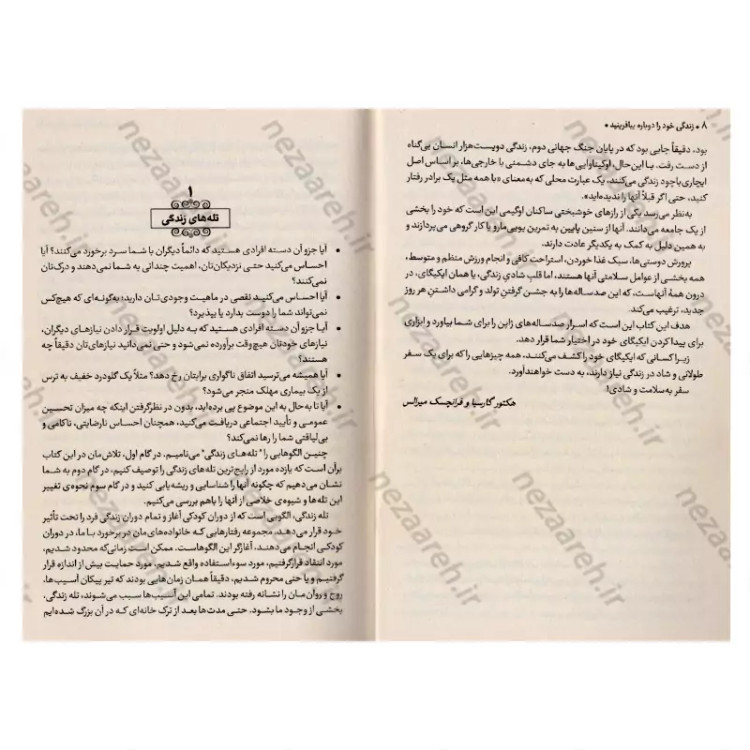 ۸ * زندگی خود را دوباره بیافرینید *
بود، دقیقاً جایی بود که در پایان جنگ جهانی دوم، زندگی دویست‌هزار انسان بی‌گناه
از دست رفت. با این‌حال، اوکیناوایی‌ها به جای دشمنی با خارجی‌ها، بر اساس اصل
ایچاری‌باچود زندگی می‌کنند، یک عبارت محلی که به‌معنای «با همه مثل یک برادر رفتار
کنید، حتی اگر قبلاً آنها را ندیده‌اید».
به‌نظر می‌رسد یکی از رازهای خوشبختی ساکنان اوگیمی این است که خود را بخشی
از یک جامعه می‌دانند. آنها از سنین پایین به تمرین یویی‌مارو یا کار گروهی می‌پردازند و
به همین دلیل به کمک به یکدیگر عادت دارند.
پرورش دوستی‌ها، سبک غذا خوردن، استراحت کافی و انجام ورزش منظم و متوسط،
همه بخشی از عوامل سلامتی آنها هستند، اما قلبِ شادیِ زندگی، یا همان ایکیگای، در
درون همۀ آنهاست، که این صدساله‌ها را به جشن گرفتنِ تولد و گرامی داشتنِ هر روز
جدید، ترغیب می‌کند.
هدف این کتاب این است که اسرار صدساله‌های ژاپن را برای شما بیاورد و ابزاری
برای پیدا کردن ایکیگای خود در اختیار شما قرار دهد.
زیرا کسانی که ایکیگای خود را کشف می‌کنند، همه چیزهایی را که برای یک سفر
طولانی و شاد در زندگی نیاز دارند، به دست خواهندآورد.
سفر به‌سلامت و شادی!
هکتور گارسیا و فرانچسک میرالس
۱
تله‌های زندگی
• آیا جزو آن دسته افرادی هستید که دائماً دیگران با شما سرد برخورد می‌کنند؟ آیا
احساس می‌کنید حتی نزدیکان‌تان، اهمیت چندانی به شما نمی‌دهند و درک‌تان
نمی‌کنند؟
• آیا احساس می‌کنید نقصی در ماهیت وجودی‌تان دارید؛ به‌گونه‌ای که هیچ‌کس
نمی‌تواند شما را دوست بدارد یا بپذیرد؟
• آیا جزو آن دسته افرادی هستید که به دلیل اولویت قرار دادن نیازهای دیگران،
نیازهای خودتان هیچ‌وقت برآورده نمی‌شود و حتی نمی‌دانید نیازهای‌تان دقیقاً چه
هستند؟
• آیا همیشه می‌ترسید اتفاق ناگواری برایتان رخ دهد؟ مثلاً یک گلودرد خفیف به ترس
از یک بیماری مهلک منجر می‌شود؟
• آیا تا به‌حال به این موضوع پی برده‌اید، بدون در نظرگرفتن اینکه چه میزان تحسین
عمومی و تأیید اجتماعی دریافت می‌کنید، همچنان احساس نارضایتی، ناکامی و
بی‌لیاقتی شما را رها نمی‌کند؟
چنین الگوهایی را "تله‌های زندگی" می‌نامیم. در گام اول، تلاش‌مان در این کتاب
برآن است که یازده مورد از رایج‌ترین تله‌های زندگی را توصیف کنیم، در گام دوم به شما
نشان می‌دهیم که چگونه آنها را شناسایی و ریشه‌یابی کنید و در گام سوم نحوه‌ی تغییر
این تله‌ها و شیوه‌ی خلاصی از آنها را باهم بررسی می‌کنیم.
تله زندگی، الگویی است که از دوران کودکی آغاز و تمام دوران زندگی فرد را تحت تأثیر
خود قرار می‌دهد. مجموعه رفتارهایی که خانواده‌های‌مان در برخورد با ما، در دوران
کودکی انجام می‌دهند، آغازگر این الگوهاست. ممکن است زمانی‌که محدود شدیم،
مورد انتقاد قرارگرفتیم، مورد سوءاستفاده واقع شدیم، مورد حمایت بیش از اندازه قرار
گرفتیم و یا حتی محروم شدیم، دقیقاً همان زمان‌هایی بودند که تیر پیکان آسیب‌ها،
روح و روان‌مان را نشانه رفته بودند. تمامی این آسیب‌ها سبب می‌شوند، تله زندگی،
بخشی از وجود ما بشود. حتی مدت‌ها بعد از ترک خانه‌ای که در آن بزرگ شده‌ایم
nezaareh.ir